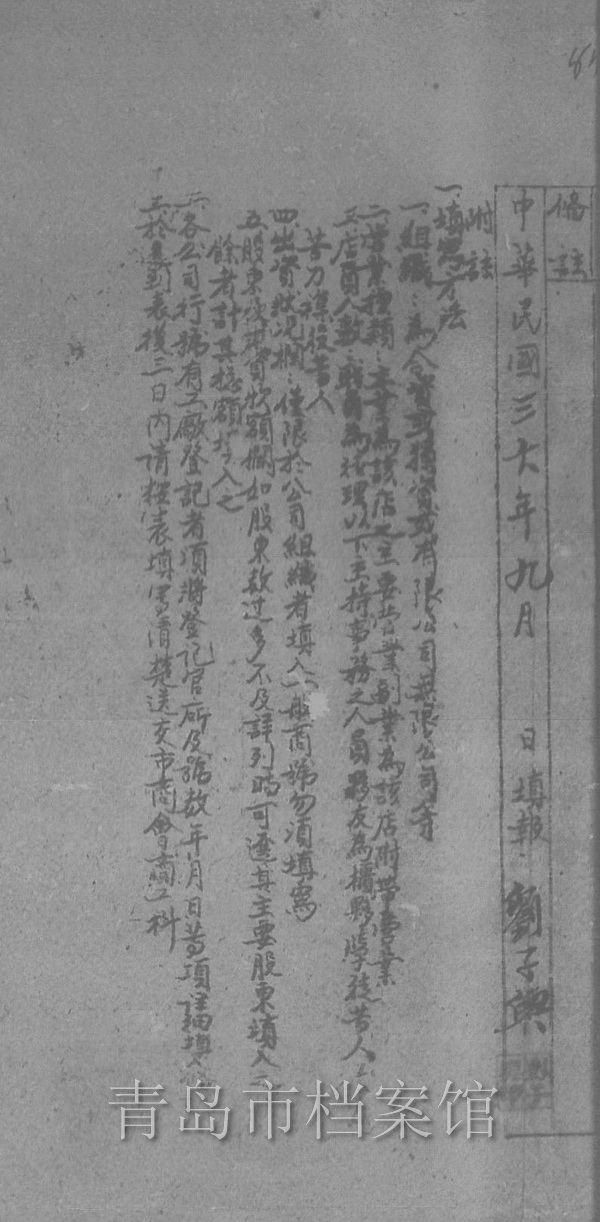 備註
中華民國三十年九月　日填報　劉子興
附註
一、填寫方法
一、組織：為合資或獨資或有限公司無限公司等
二、營業種類：主業為該店之主要營業副業為該店附帶營業
三、店員人數：職員為經理以下主持事務之人員夥友為櫃夥學徒等人
苦力雜役等人
四、出資狀況欄：僅限於公司組織者填入一般商號勿須填寫
五、股東及出資數額欄如股東數過多不及詳列時可選其主要股東填入
餘者計其總額填入之
二、各公司行號有工廠登記者須將登記官所及號數年月日等項詳細填入
三、於送到表後三日內請按表填寫清楚送交市商會商工科
青岛市档案馆